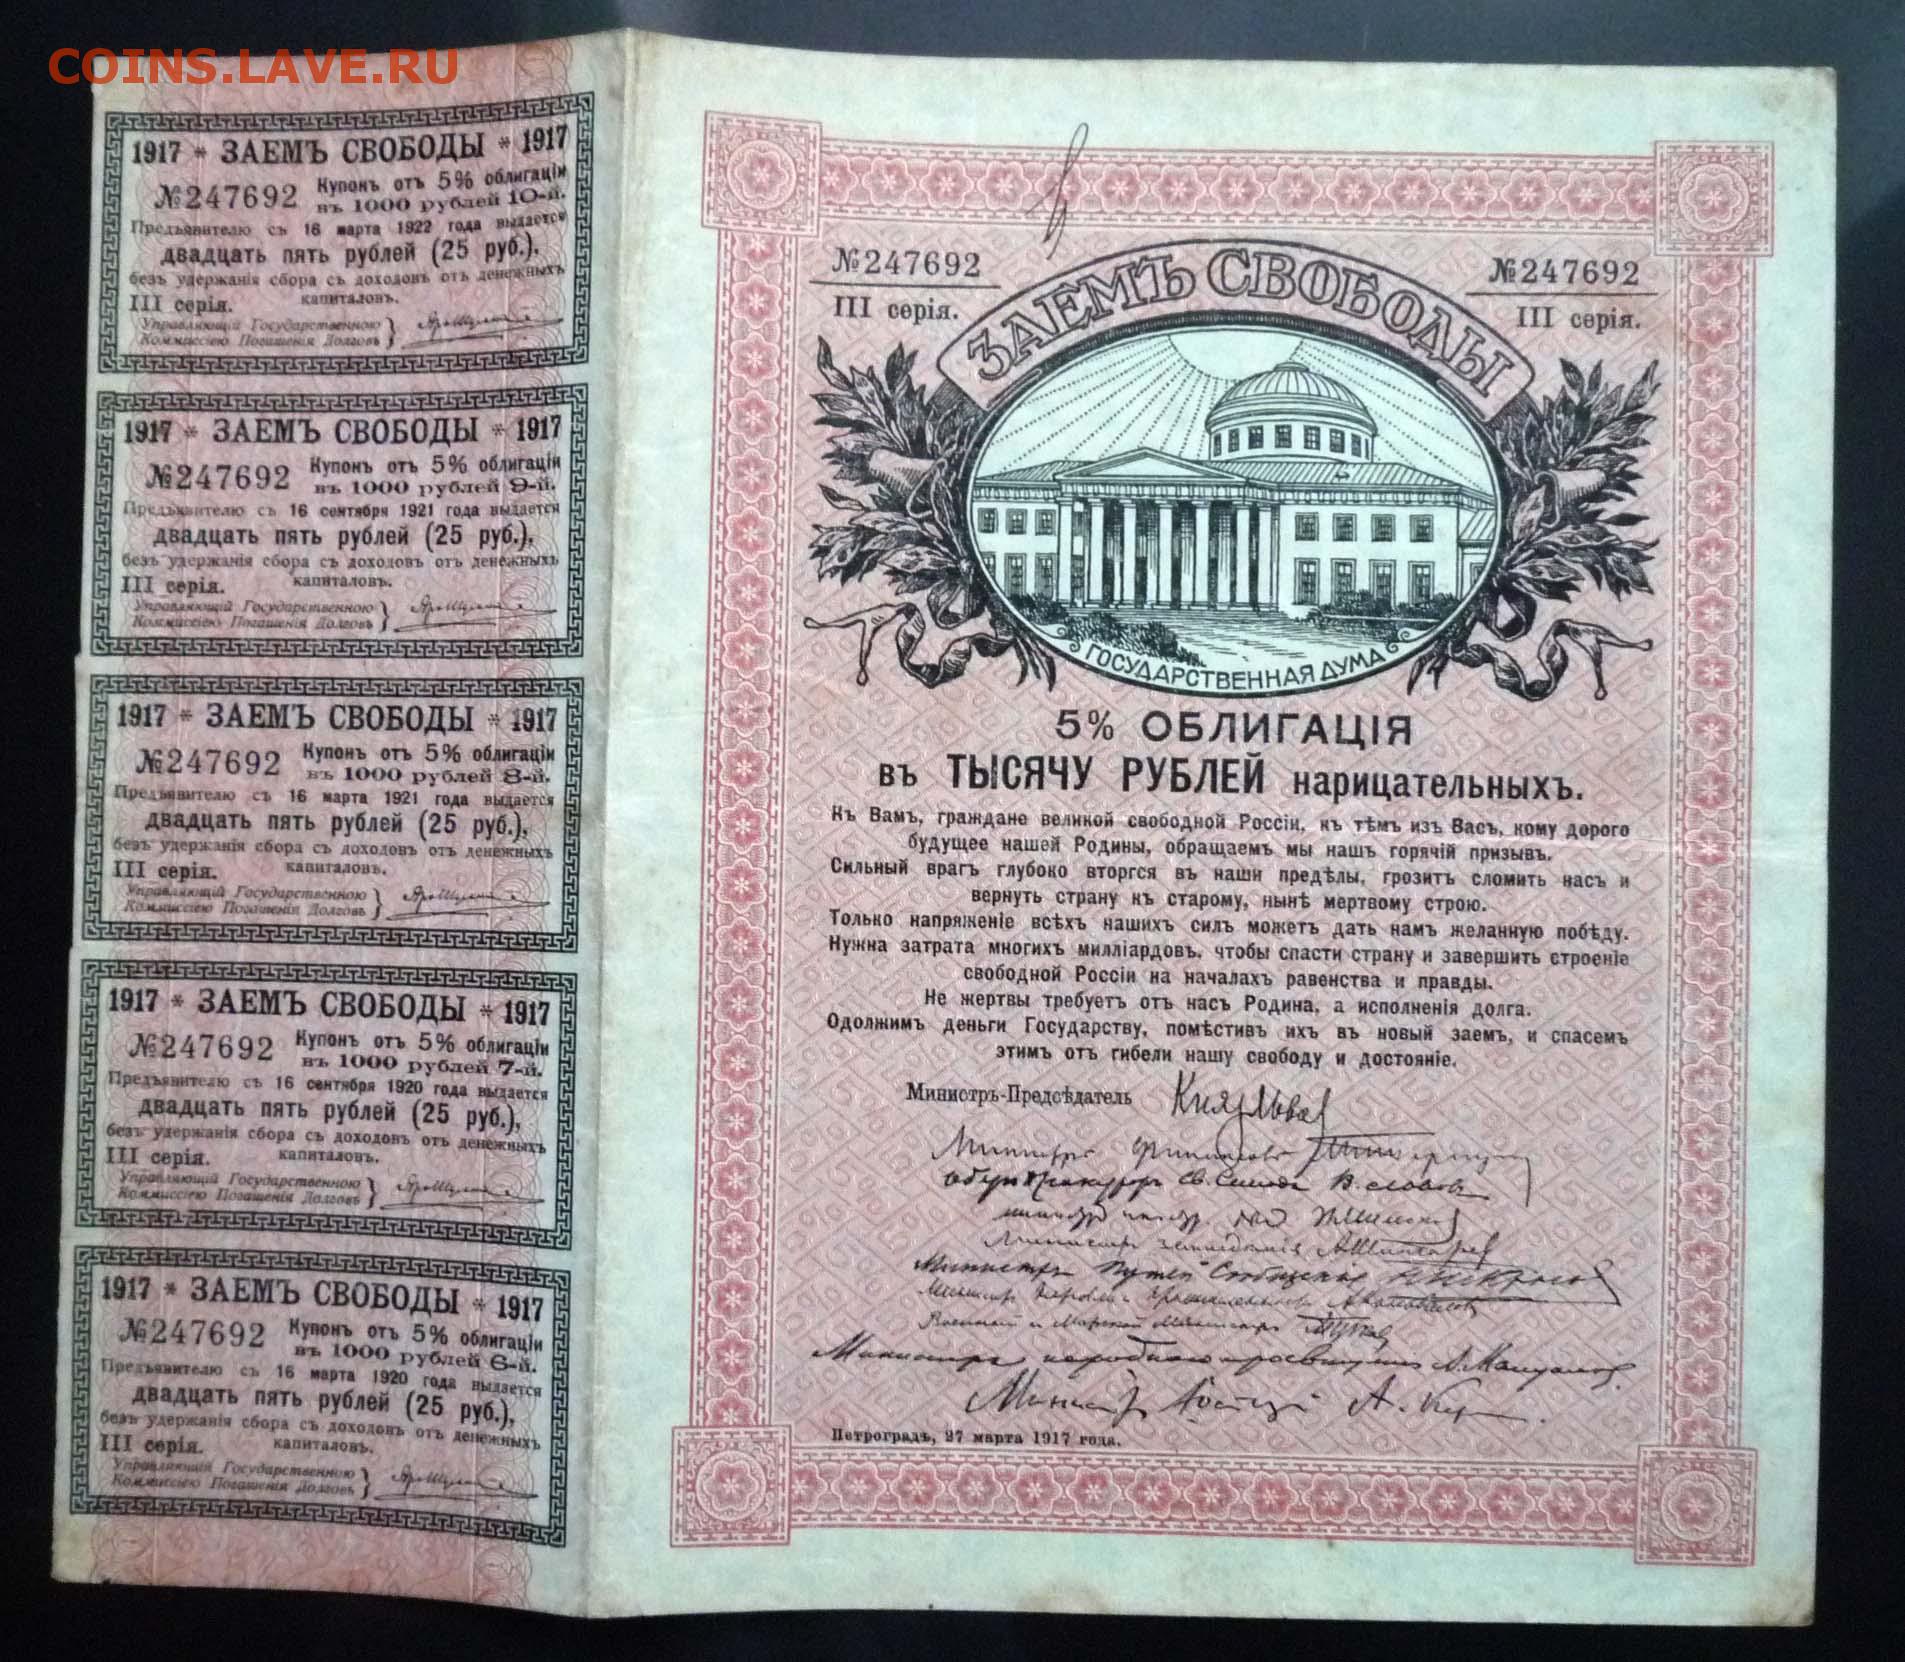 COINS.LAVE.RU
1917 * ЗАЕМЪ СВОБОДЫ * 1917
№247692 Купонъ отъ 5% облигаціи
въ 1000 рублей 10-й.
Предъявителю съ 16 марта 1922 года выдается
двадцать пять рублей (25 руб.),
безъ удержанія сбора съ доходовъ отъ денежныхъ
III серія. капиталовъ.
Управляющій Государственною
Коммиссіею Погашенія Долговъ
1917 * ЗАЕМЪ СВОБОДЫ * 1917
№247692 Купонъ отъ 5% облигаціи
въ 1000 рублей 9-й.
Предъявителю съ 16 сентября 1921 года выдается
двадцать пять рублей (25 руб.),
безъ удержанія сбора съ доходовъ отъ денежныхъ
III серія. капиталовъ.
Управляющій Государственною
Коммиссіею Погашенія Долговъ
1917 * ЗАЕМЪ СВОБОДЫ * 1917
№247692 Купонъ отъ 5% облигаціи
въ 1000 рублей 8-й.
Предъявителю съ 16 марта 1921 года выдается
двадцать пять рублей (25 руб.),
безъ удержанія сбора съ доходовъ отъ денежныхъ
III серія. капиталовъ.
Управляющій Государственною
Коммиссіею Погашенія Долговъ
1917 * ЗАЕМЪ СВОБОДЫ * 1917
№247692 Купонъ отъ 5% облигаціи
въ 1000 рублей 7-й.
Предъявителю съ 16 сентября 1920 года выдается
двадцать пять рублей (25 руб.),
безъ удержанія сбора съ доходовъ отъ денежныхъ
III серія. капиталовъ.
Управляющій Государственною
Коммиссіею Погашенія Долговъ
1917 * ЗАЕМЪ СВОБОДЫ * 1917
№247692 Купонъ отъ 5% облигаціи
въ 1000 рублей 6-й.
Предъявителю съ 16 марта 1920 года выдается
двадцать пять рублей (25 руб.),
безъ удержанія сбора съ доходовъ отъ денежныхъ
III серія. капиталовъ.
Управляющій Государственною
Коммиссіею Погашенія Долговъ
№247692
III серія.
ЗАЕМЪ СВОБОДЫ
№247692
III серія.
ГОСУДАРСТВЕННАЯ ДУМА
5% ОБЛИГАЦІЯ
въ ТЫСЯЧУ РУБЛЕЙ нарицательныхъ.
Къ Вамъ, граждане великой свободной Россіи, къ тѣмъ изъ Васъ, кому дорого
будущее нашей Родины, обращаемъ мы нашъ горячій призывъ.
Сильный врагъ глубоко вторгся въ наши предѣлы, грозитъ сломить насъ и
вернуть страну къ старому, нынѣ мертвому строю.
Только напряженіе всѣхъ нашихъ силъ можетъ дать намъ желанную побѣду.
Нужна затрата многихъ милліардовъ, чтобы спасти страну и завершить строеніе
свободной Россіи на началахъ равенства и правды.
Не жертвы требуетъ отъ насъ Родина, а исполненія долга.
Одолжимъ деньги Государству, помѣстивъ ихъ въ новый заемъ, и спасемъ
этимъ отъ гибели нашу свободу и достояніе.
Министръ-Предсѣдатель Князь Львов
Министръ Финансовъ
Оберъ Прокуроръ Св. Синода В. Львовъ
Министръ
Министръ земледѣлія А Шингарев
Министръ Путей Сообщенія Н Некрасов
Министр Торговли и Промышленности А Коновалов
Военный и Морской Министръ Гучков
Министръ народного просвещения А. Мануилов.
Министр Юстиции А. Кер
Петроградъ, 27 марта 1917 года.